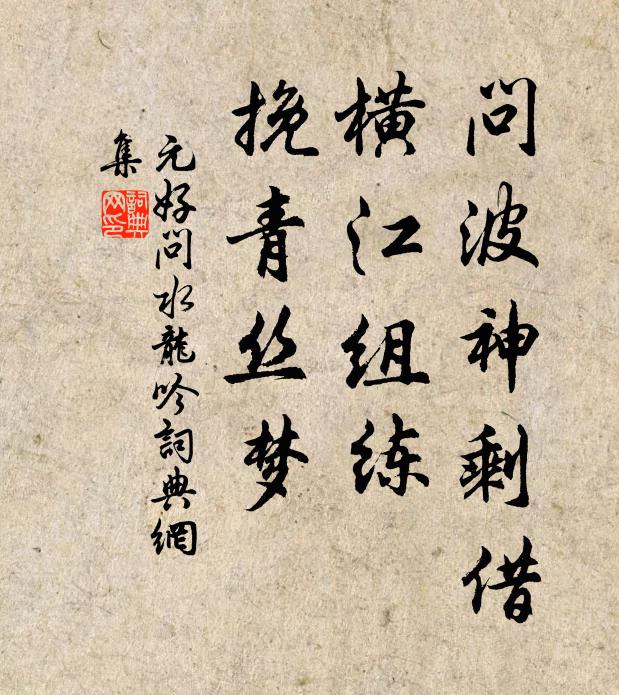 问波神剩借
横江组练
挽青丝梦
元好问水龍吟詞典網
集
詞典网印